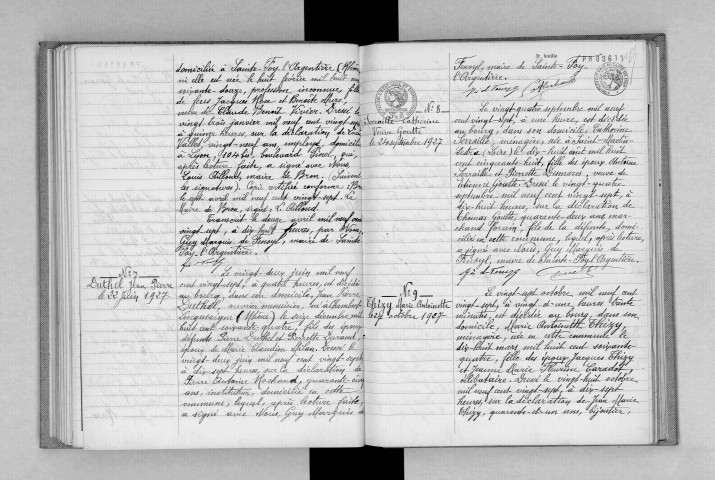 domiciliée à Sainte-Foy l'Argentière (Rhône)
où elle est née le huit février mil huit cent
soixante douze, profession inconnue, fille
de feus Jacques et Benoite
veuve de Claude Benoît Vivier. Dressé le
vingt trois janvier mil neuf cent vingt sept
à quinze heures, sur la déclaration de
Vallet, vingt-neuf ans, employé, domicilié
à Lyon, boulevard Pinel, qui,
après lecture faite, a signé avec Nous
Louis maire de Bron. (Suivent
les signatures). Copie certifiée conforme: Bron
le sept avril mil neuf cent vingt-sept. Le
Maire de Bron, signé, L.
Transcrit le douze avril mil neuf cent
vingt-sept, à dix-huit heures, par Nous,
Guy Marquis de Fenoyl, maire de Sainte
Foy l'Argentière.
N° 7
Duthel Jean Pierre
le 22 Juin 1927
Le vingt-deux juin mil neuf
cent vingt-sept, à quatre heures, est décédé
au bourg, dans son domicile, Jean Pierre
Duthel, ouvrier menuisier, né à
Longessaigne (Rhône) le seize décembre mil
huit cent soixante quatre, fils des époux
défunts Pierre Duthel et Pierrette Durand,
époux de Marie Claudine. Dressé le
vingt-deux juin mil neuf cent vingt-sept
à dix-sept heures, sur la déclaration de
Pierre Antoine, quarante-cinq
ans, instituteur, domicilié en cette
commune, lequel, après lecture faite,
a signé avec Nous, Guy Marquis de
Fenoyl, maire de Sainte-Foy
l'Argentière.
N° 8
Catherine
Veuve Goutte
le 24 septembre 1927
Le vingt-quatre septembre mil neuf
cent vingt-sept, à une heure, est décédée
au bourg, dans son domicile, Catherine
ménagère, née à Saint-Martin-
(Loire) le dix-huit août mil huit
cent cinquante-huit, fille des époux Antoine
et Pierrette, veuve de
Etienne Goutte. Dressé le vingt-quatre
septembre mil neuf cent vingt-sept, à
dix-huit heures, sur la déclaration de
Thomas Goutte, quarante-deux ans, mar-
chand forain, fils de la défunte, domi-
cilié en cette commune, lequel, après lecture,
a signé avec Nous, Guy Marquis de
Fenoyl, maire de Sainte-Foy l'Argentière.
N° 9
Thizy Marie Antoinette
le 27 octobre 1927
Le vingt-sept octobre, mil neuf cent
vingt-sept, à vingt et une heures trente
minutes, est décédée au bourg, dans son
domicile, Marie Antoinette Thizy,
ménagère, née en cette commune le
dix-huit mars mil huit cent soixante-
quatre, fille des époux Jacques Thizy
et Jeanne Marie Fleurine Caradot,
célibataire. Dressé le vingt-huit octobre
mil neuf cent vingt-sept, à dix-sept
heures, sur la déclaration de Jean Marie
Thizy, quarante-et-un ans, bijoutier,